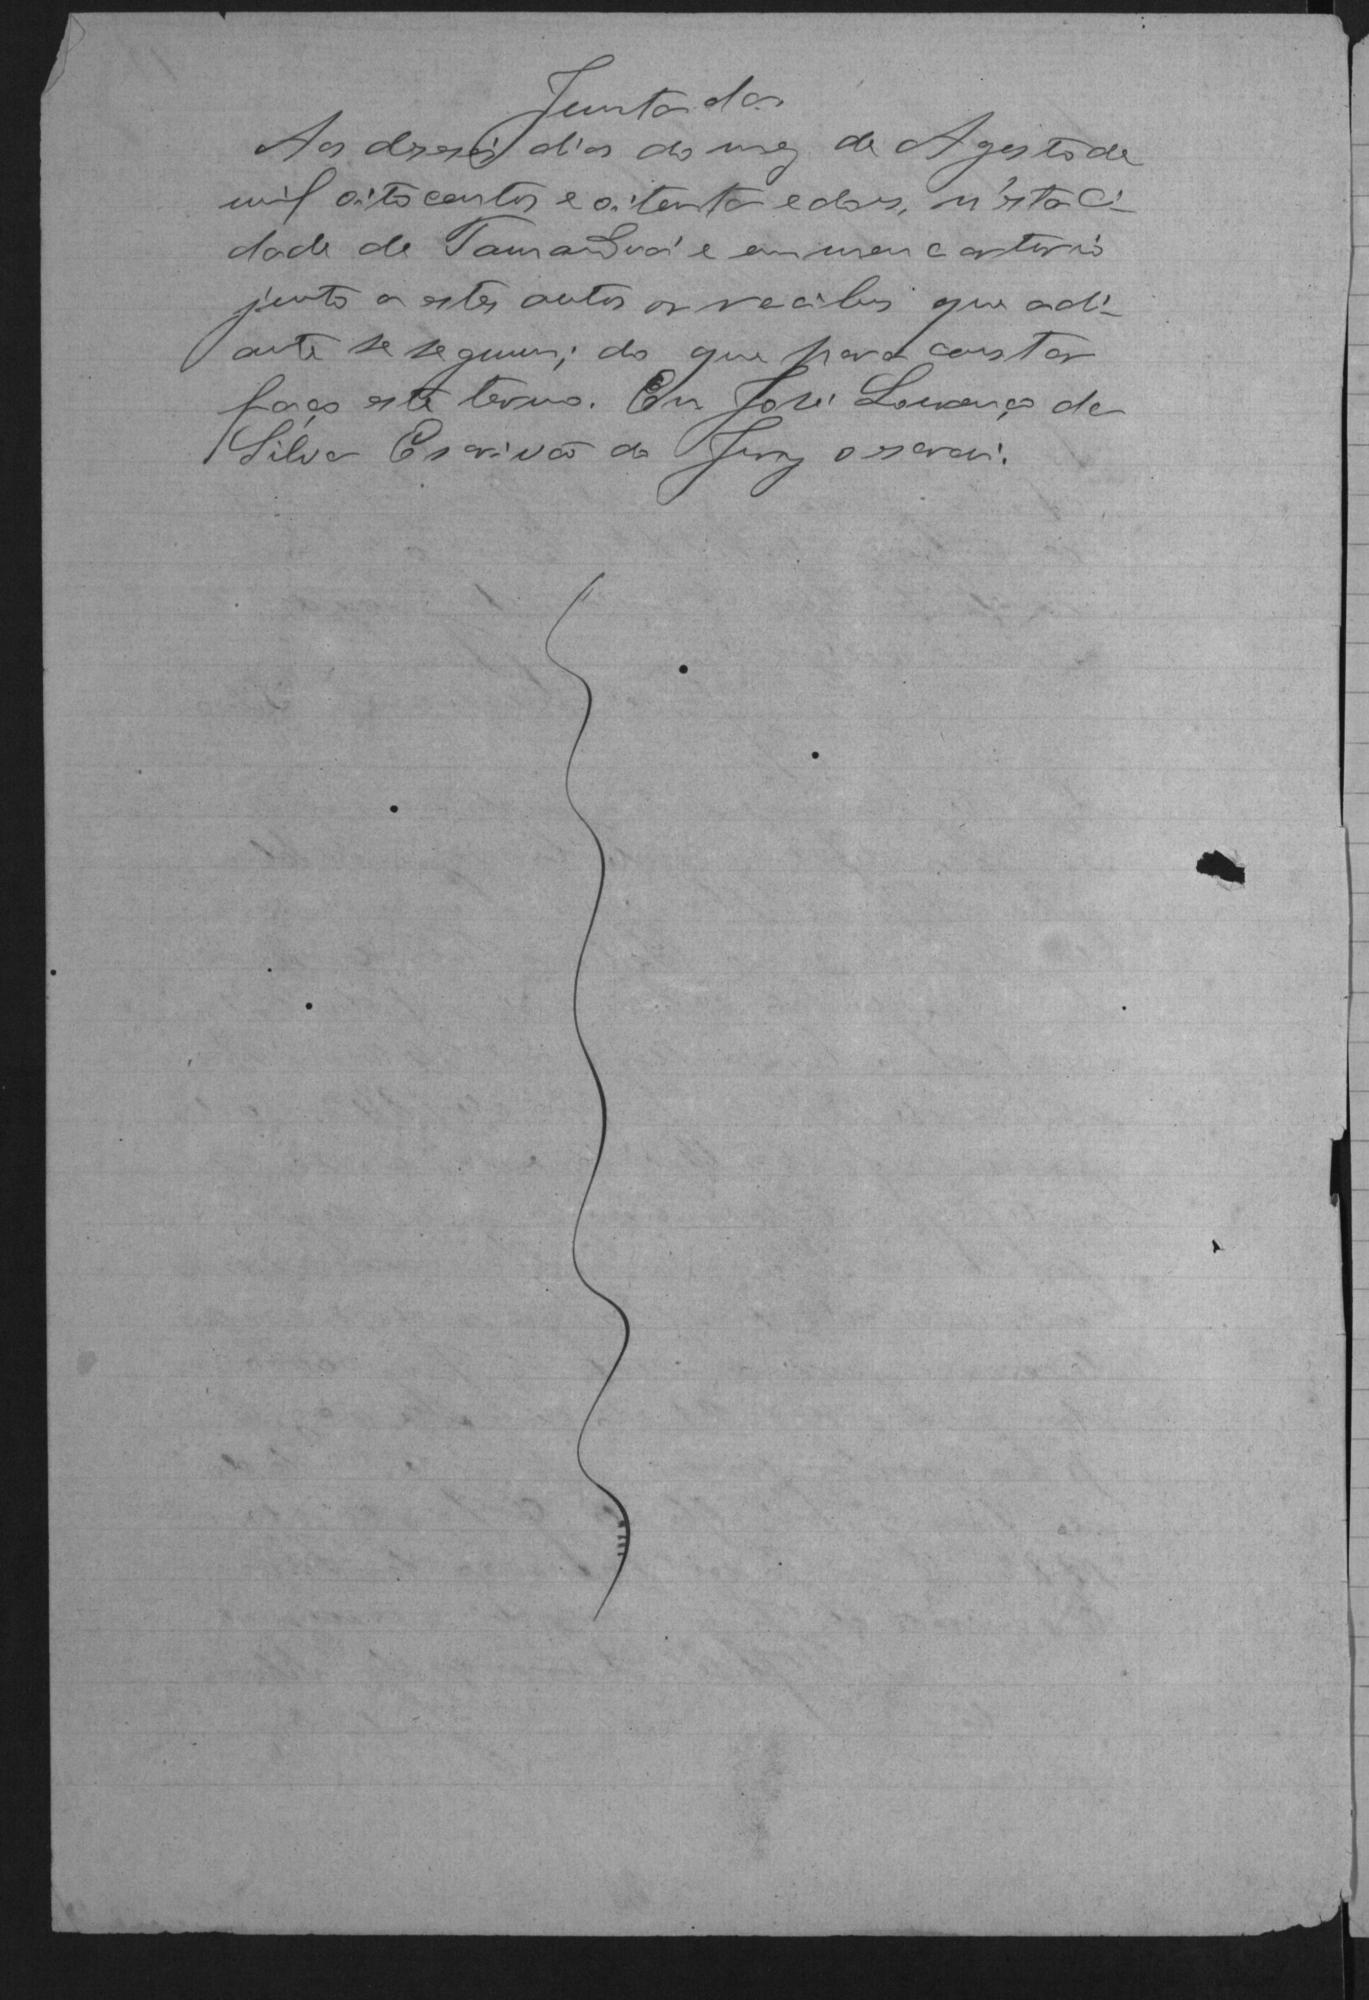 Juntada
Aos dezeseis dias do mez de Agosto de
mil oito centos e oitenta e dous, n'esta Ci-
dade de Tamanduá e em meu cartorio
junto a estes autos os recibos que adi-
ante se seguem; do que para constar
faço este termo. Eu José Lourenço da
Silva Escrivão do Jury o escrevi.